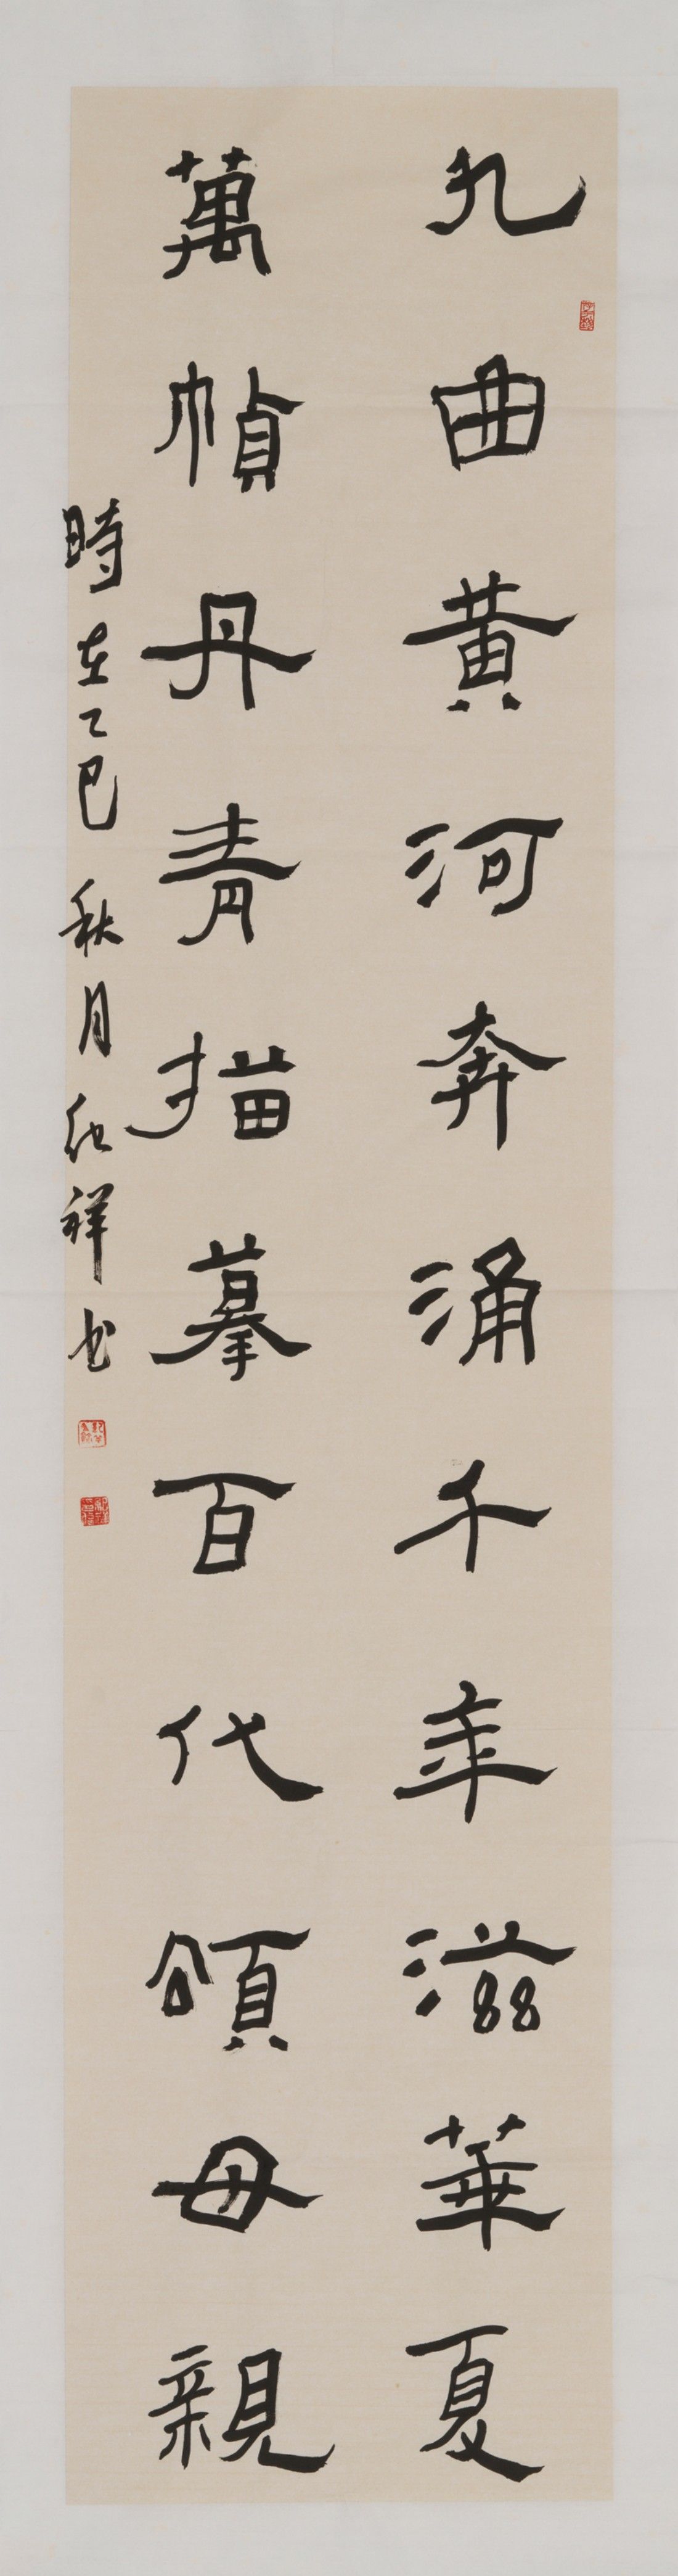 九曲黃河奔涌千年滋華夏
萬幀丹青描摹百代頌母親
時在乙巳秋月紀祥書